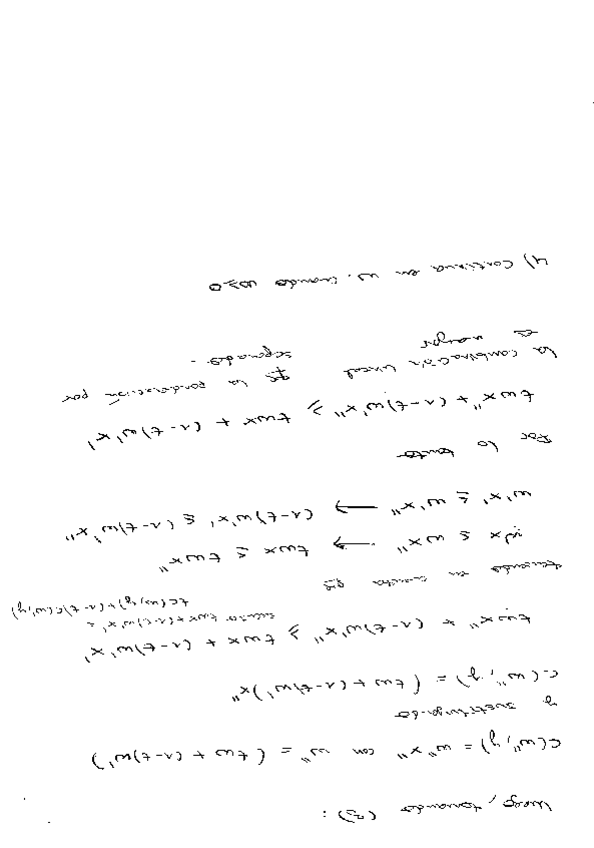 Luego, tomando (3):
c(w'', y) = w'' x'' con w'' = (tw + (1-t)w')
y sustituyendo
c(w'', y) = (tw + (1-t)w')x''
twx'' + (1-t)w'x'' ≥ twx + (1-t)w'x'
twx + (1-t)w'x' =
tc(w,y) + (1-t)c(w',y)
tomando en cuenta qE
wx ≤ wx'' → twx ≤ twx''
w'x' ≤ w'x'' → (1-t)w'x' ≤ (1-t)w'x''
Por lo tanto
twx'' + (1-t)w'x'' ≥ twx + (1-t)w'x'
La combinación lineal es mayor qE la ponderación por separado.
4) Continua en w, cuando w≥0